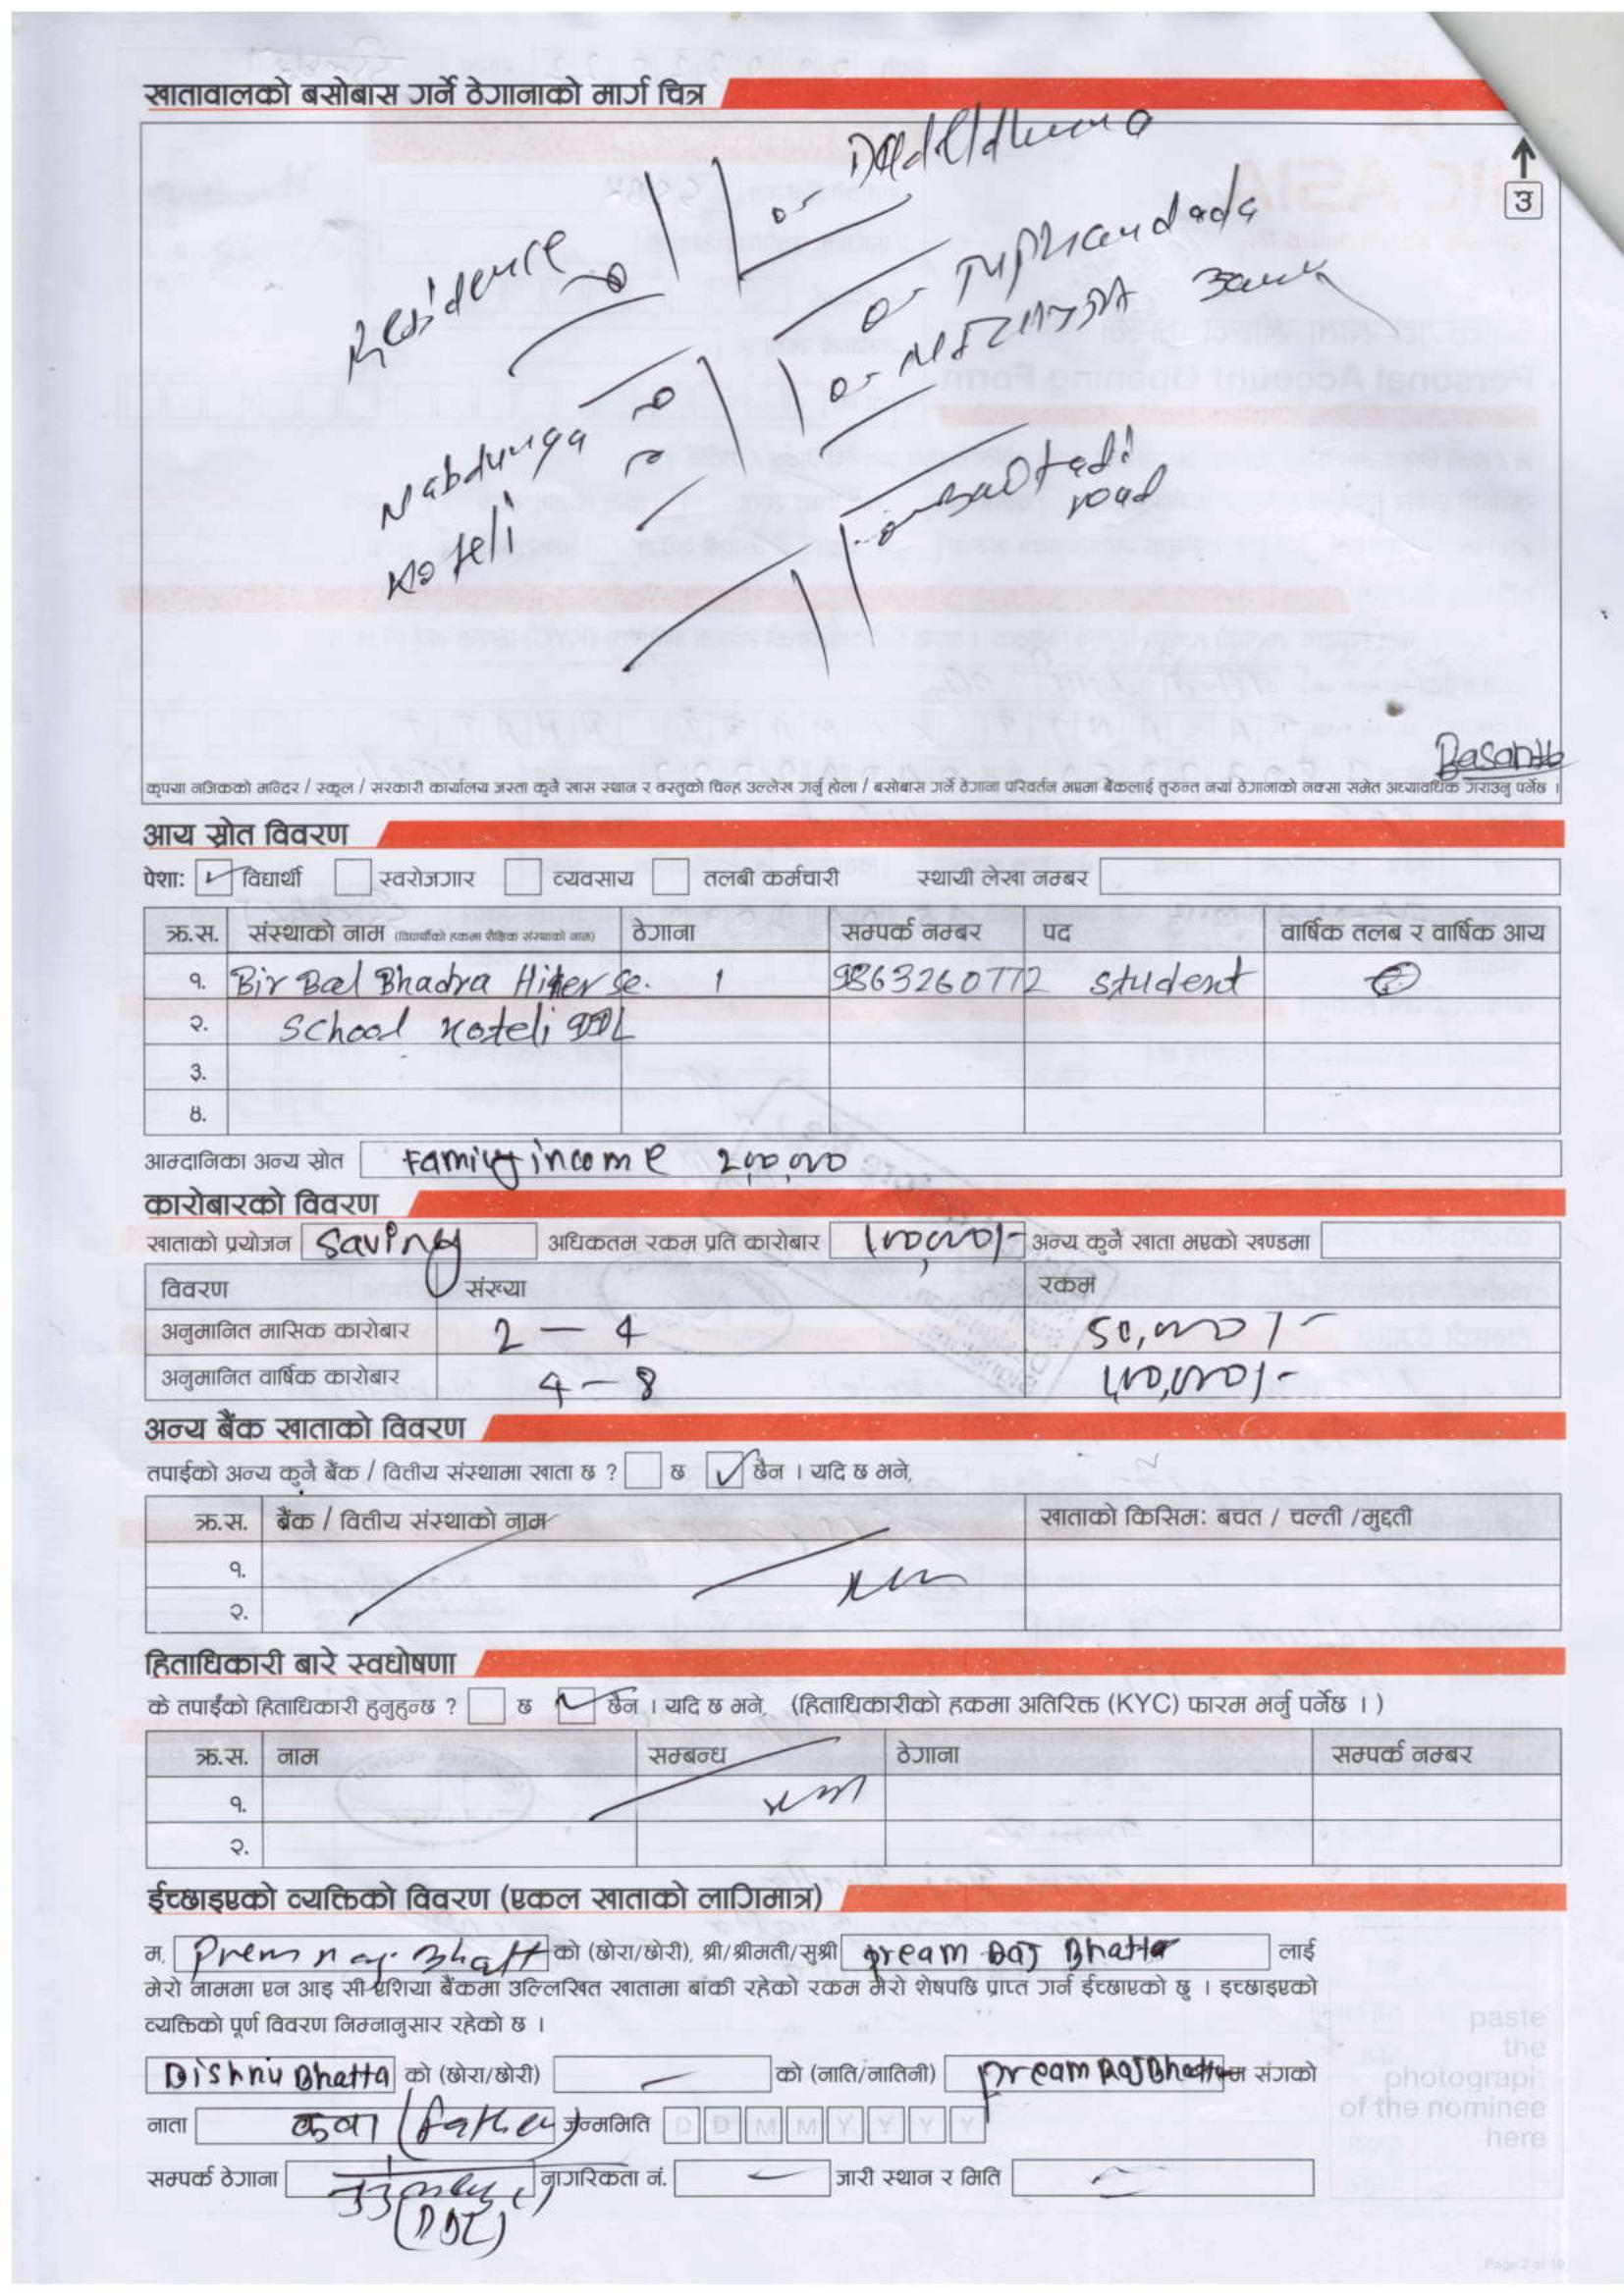 खातावालको बसोबास गर्ने ठेगानाको मार्ग चित्र
Dadeldhura
उ
Residence
Tuphandada
Bank
Nabdurga
Koteli
road
Basanti
कृपया नजिकको मन्दिर / स्कूल / सरकारी कार्यालय जस्ता कुनै खास स्थान र वस्तुको चिन्ह उल्लेख गर्नु होला / बसोबास गर्ने ठेगाना परिवर्तन भएमा बैंकलाई तुरुन्त नयाँ ठेगानाको नक्सा समेत अध्यावधिक गराउनु पर्नेछ ।
आय स्रोत विवरण
पेशा: विद्यार्थी स्वरोजगार व्यवसाय तलबी कर्मचारी स्थायी लेखा नम्बर
क्र.स. संस्थाको नाम (विद्यार्थीको हकमा शैक्षिक संस्थाको नाम) ठेगाना सम्पर्क नम्बर पद वार्षिक तलब र वार्षिक आय
१. Bir Bal Bhadra Higher Se. 1 9863260772 student
२. School Koteli DDL
३.
४.
आम्दानिका अन्य स्रोत Family income 2,00,000
कारोबारको विवरण
खाताको प्रयोजन Saving अधिकतम रकम प्रति कारोबार 1,00,000/- अन्य कुनै खाता भएको खण्डमा
विवरण संख्या रकम
अनुमानित मासिक कारोबार 2 - 4 50,000/-
अनुमानित वार्षिक कारोबार 4 - 8 1,00,000/-
अन्य बैंक खाताको विवरण
तपाईको अन्य कुनै बैंक / वित्तीय संस्थामा खाता छ ? छ छैन । यदि छ भने,
क्र.स. बैंक / वित्तीय संस्थाको नाम खाताको किसिम: बचत / चल्ती /मुद्दती
१.
२.
हिताधिकारी बारे स्वघोषणा
के तपाईंको हिताधिकारी हुनुहुन्छ ? छ छैन । यदि छ भने, (हिताधिकारीको हकमा अतिरिक्त (KYC) फारम भर्नु पर्नेछ । )
क्र.स. नाम सम्बन्ध ठेगाना सम्पर्क नम्बर
१.
२.
ईच्छाइएको व्यक्तिको विवरण (एकल खाताको लागिमात्र)
म, Prem Raj Bhatt को (छोरा/छोरी), श्री/श्रीमती/सुश्री Pream Raj Bhatta लाई
मेरो नाममा एन आइ सी एशिया बैंकमा उल्लिखित खातामा बांकी रहेको रकम मेरो शेषपछि प्राप्त गर्न ईच्छाएको छु । इच्छाइएको
व्यक्तिको पूर्ण विवरण निम्नानुसार रहेको छ ।
Bishnu Bhatta को (छोरा/छोरी) — को (नाति/नातिनी) Pream Raj Bhatta म संगको
नाता (father) जन्ममिति D D M M Y Y Y Y
सम्पर्क ठेगाना नागरिकता नं. — जारी स्थान र मिति —
(DDL)
paste
the
photograph
of the nominee
here
Page 2 of 10